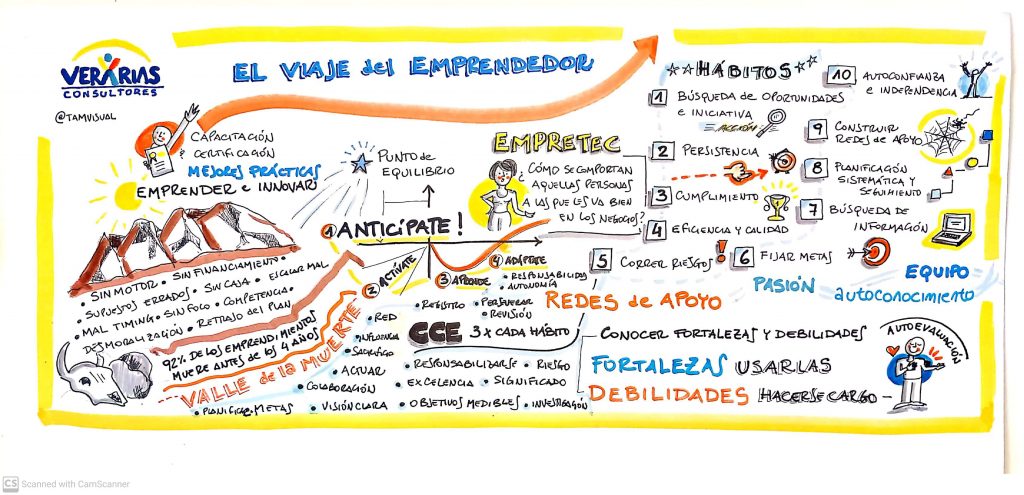 VERARIAS
CONSULTORES
@TAMVISUAL
EL VIAJE del EMPRENDEDOR
CAPACITACIÓN
Y CERTIFICACIÓN
MEJORES PRÁCTICAS
EMPRENDER e INNOVAR
PUNTO de
EQUILIBRIO
1 ANTICÍPATE!
2 ACTÍVATE
3 APRENDE
4 ADÁPTATE
SIN MOTOR • SIN FINANCIAMIENTO
• SUPUESTOS ERRADOS • SIN CAJA • ESCALAR MAL
MAL TIMING • SIN FOCO • COMPETENCIA
DESMORALIZACIÓN • RETRASO del PLAN
92% DE LOS EMPRENDIMIENTOS
MUERE ANTES DE LOS 4 AÑOS
VALLE de la MUERTE
• PLANIFICAR METAS
• RED
• INFLUENCIA
• SACRIFICIO
• ACTUAR
• COLABORACIÓN
• VISIÓN CLARA
• REGISTRO
• PERSEVERAR
• REVISIÓN
• RESPONSABILIDAD
• AUTONOMÍA
CCE 3 x CADA HÁBITO
• RESPONSABILIZARSE • RIESGO
• EXCELENCIA • SIGNIFICADO
• OBJETIVOS MEDIBLES • INVESTIGACIÓN
EMPRETEC
¿CÓMO SE COMPORTAN
AQUELLAS PERSONAS
A LAS QUE LES VA BIEN
EN LOS NEGOCIOS?
HÁBITOS
1 BÚSQUEDA de OPORTUNIDADES
e INICIATIVA
ACCIÓN
2 PERSISTENCIA
3 CUMPLIMIENTO
4 EFICIENCIA y CALIDAD
5 CORRER RIESGOS!
6 FIJAR METAS
7 BÚSQUEDA DE
INFORMACIÓN
8 PLANIFICACIÓN
SISTEMÁTICA Y
SEGUIMIENTO
9 CONSTRUIR
REDES de APOYO
10 AUTOCONFIANZA
e INDEPENDENCIA
REDES de APOYO
PASIÓN
EQUIPO
autoconocimiento
CONOCER FORTALEZAS Y DEBILIDADES
FORTALEZAS USARLAS
DEBILIDADES HACERSE CARGO
AUTOEVALUACIÓN
CS Scanned with CamScanner